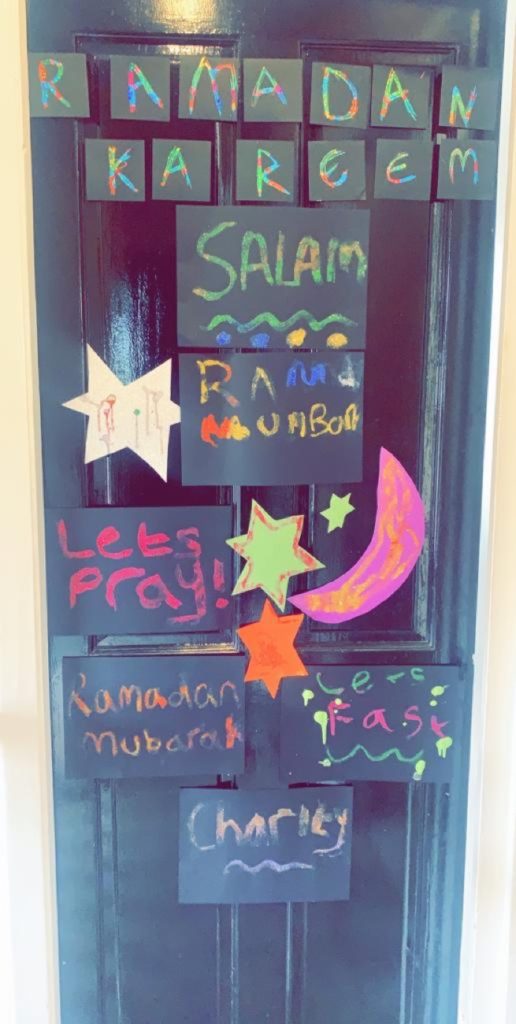 RAMADAN
KAREEM
SALAM
Lets
Pray!
Ramadan
mubarak
Lets
Fast
Charity